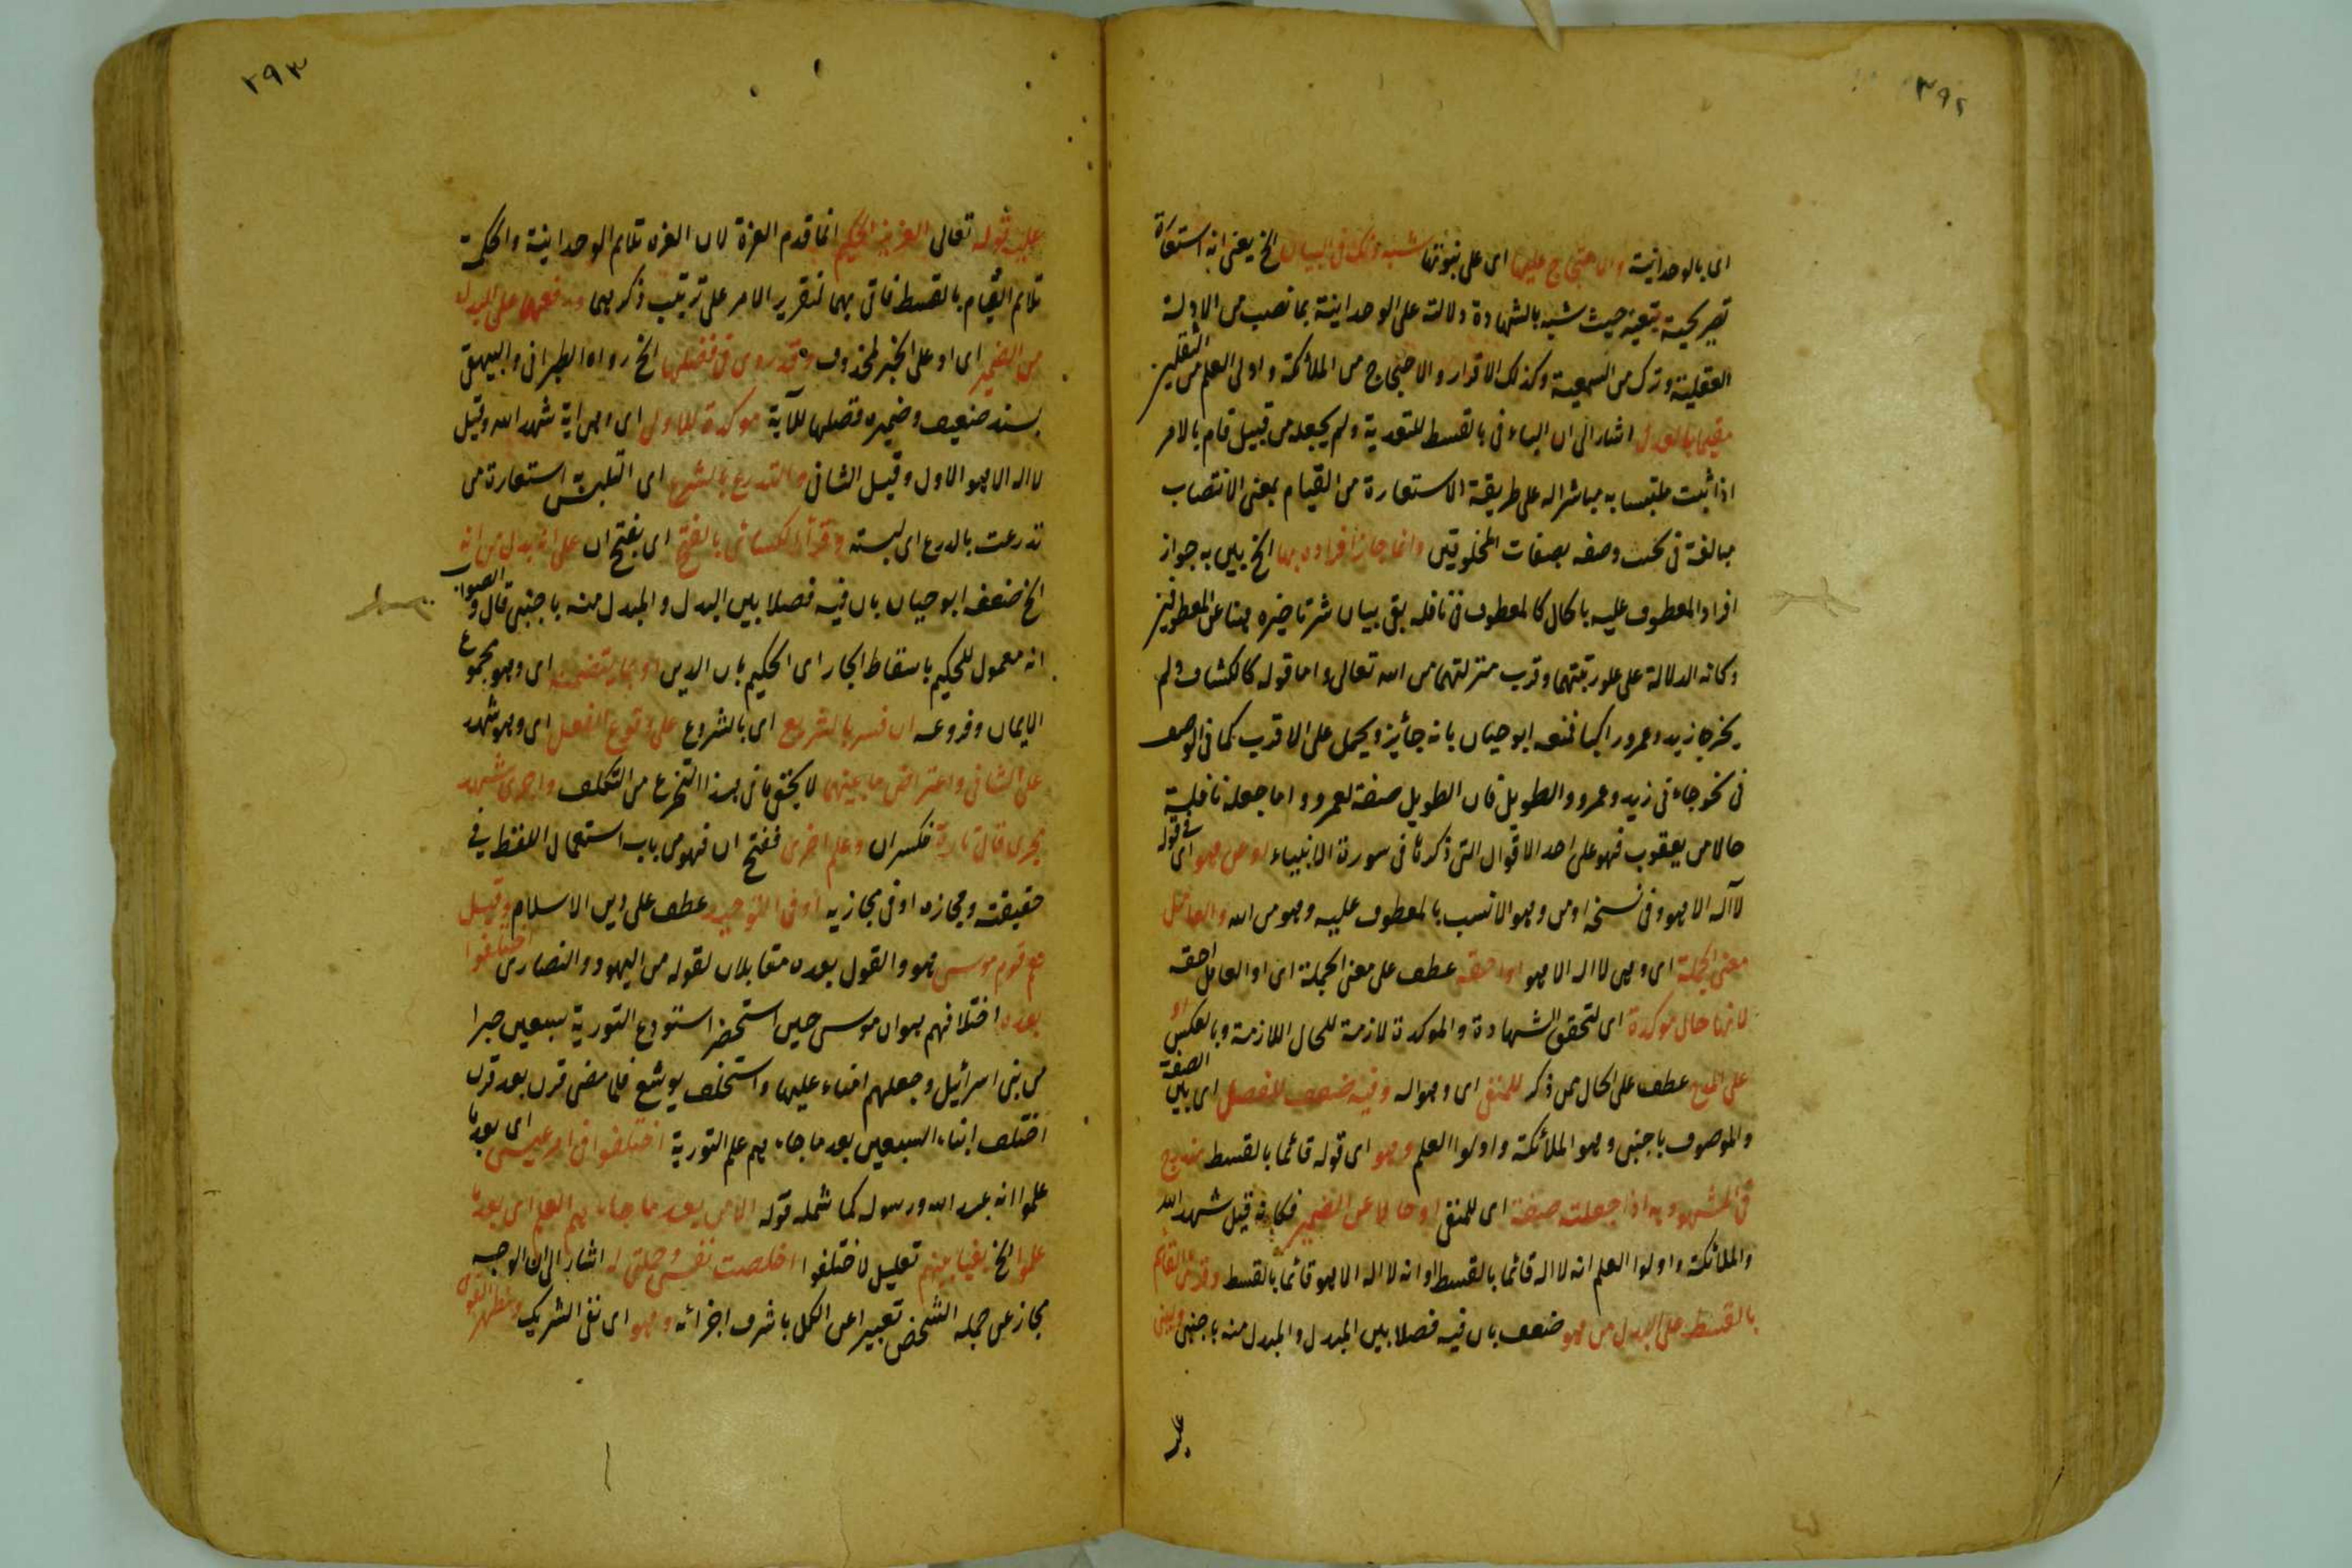 ٣٩٢
اى بالوحدانية والاحتجاج عليها اى على ثبوتها شبه ذلك فى البيان الخ يعنى انه استعارة
تصريحية تبعية حيث شبه بالشهادة دلالته على الوحدانية بما نصب من الادلة
العقلية ونزل من السمعية وكذلك الاقرار والاحتجاج من الملائكة واولى العلم من الثقلين
مقيما بالعدل اشار الى ان الباء فى بالقسط للتعدية ولم يجعله من قبيل قام بالامر
اذا ثبت ملتبسا به مباشرا له على طريقة الاستعارة من القيام بمعنى الانتصاب
مبالغة فى وصفه بصفات المخلوقين وانما جاز افراده بها الخ بين به جواز
افراد المعطوف عليه بالحال كالمعطوف فى نافلة بقى بيان تأخيره هنا عن المعطوفين
وكانه الدلالة على علو رتبتهما وقرب منزلتهما من الله تعالى واما قوله كالكشاف ولم
يجز جاء زيد وعمرو راكبا فمنعه ابو حيان بانه جائز ويحمل على الاقرب كما فى الوصف
فى نحو جاءنى زيد وعمرو والطويل فان الطويل صفة لعمرو واما جعله نافلة
حالا من يعقوب فهو على احد الاقوال التى ذكرها فى سورة الانبياء او من هو اى فى قوله
لا اله الا هو وفى نسخة اومن وهو الانسب بالمعطوف عليه وهو من الله والعامل
معنى الجملة اى وهى لا اله الا هو او احقه عطف على معنى الجملة اى او العامل احقه
لانها حال مؤكدة اى لتحقق الشهادة والموكدة لازمة للحال اللازمة وبالعكس او
على المدح عطف على الحال ممن ذكر للمنفى اى وهو اله وفيه ضعف للفصل اى بين الصفة
والموصوف باجنبى وهو الملائكة واولوا العلم وهو اى قوله قائما بالقسط مندرج
فى المشهود به اذا جعلته صفة اى للمنفى او حالا عن الضمير فكانه قيل شهد الله
والملائكة واولوا العلم انه لا اله قائما بالقسط او انه لا اله الا هو قائما بالقسط وقرئ القائم
بالقسط على البدل من هو ضعف بان فيه فصلا بين البدل والمبدل منه باجنبى
٢٩٣
عليه قوله تعالى العزيز الحكيم انما قدم العزة لان العزة تلائم الوحدانية والحكمة
تلائم القيام بالقسط فاتى بهما لتقرير الامر على ترتيب ذكرهما ورفعهما على البدل
من الضمير اى او على الخبر لمحذوف وقد روى فى فضلها الخ رواه الطبرانى والبيهقى
بسند ضعيف وضمير فضلها للآية مؤكدة للاولى اى وهى اية شهد الله وقيل
لا اله الا هو الاول وقيل الثانى والتدرع بالشرع اى التلبس استعارة من
تدرعت بالدرع اى لبسته وقرأ الكسائى بالفتح اى بفتح ان على انه بدل من انه
الخ ضعفه ابو حيان بان فيه فصلا بين البدل والمبدل منه باجنبى قال والصواب
انه معمول للحكيم باسقاط الجار اى الحكيم بان الدين او بما يتضمنه اى وهو مجموع
الايمان وفروعه ان فسر بالشريع اى بالشروع على وقوع الفعل اى وهو شهد
على الثانى واعتراض ما بينهما لا يخفى ما فى هذا التخرع من التكلف واجرى شهد
مجرى قال تارة فكسر ان وعلم اخرى ففتح ان فهو من باب استعمال اللفظ فى
حقيقته ومجازه او فى مجازيه او فى التوحيد عطف على دين الاسلام وقيل
هم قوم موسى هو والقول بعده مقابلان لقوله من اليهود والنصارى اختلفوا
بعده اختلافهم هو ان موسى حين استحضر استودع التورية سبعين حبرا
من بنى اسرائيل وجعلهم امناء عليها واستخلف يوشع فلما مضى قرن بعد قرن
اختلف ابناء السبعين بعد ما جاءهم علم التورية اختلفوا فى امر عيسى اى بعد ما
علموا انه عبد الله ورسوله كما شمله قوله الا من بعد ما جاءهم العلم اى بعد ما
علموا الخ بغيا بينهم تعليل لاختلفوا اخلصت نفسى وجملتى له اشار الى ان الوجه
مجاز عن جملة الشخص تعبيرا عن الكل باشرف اجزائه وهو اى نفى الشريك